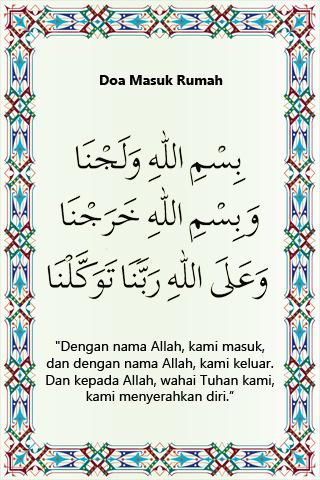 Doa Masuk Rumah
بِسْمِ اللهِ وَلَجْنَا
وَبِسْمِ اللهِ خَرَجْنَا
وَعَلَى اللهِ رَبَّنَا تَوَكَّلْنَا
"Dengan nama Allah, kami masuk,
dan dengan nama Allah, kami keluar.
Dan kepada Allah, wahai Tuhan kami,
kami menyerahkan diri."